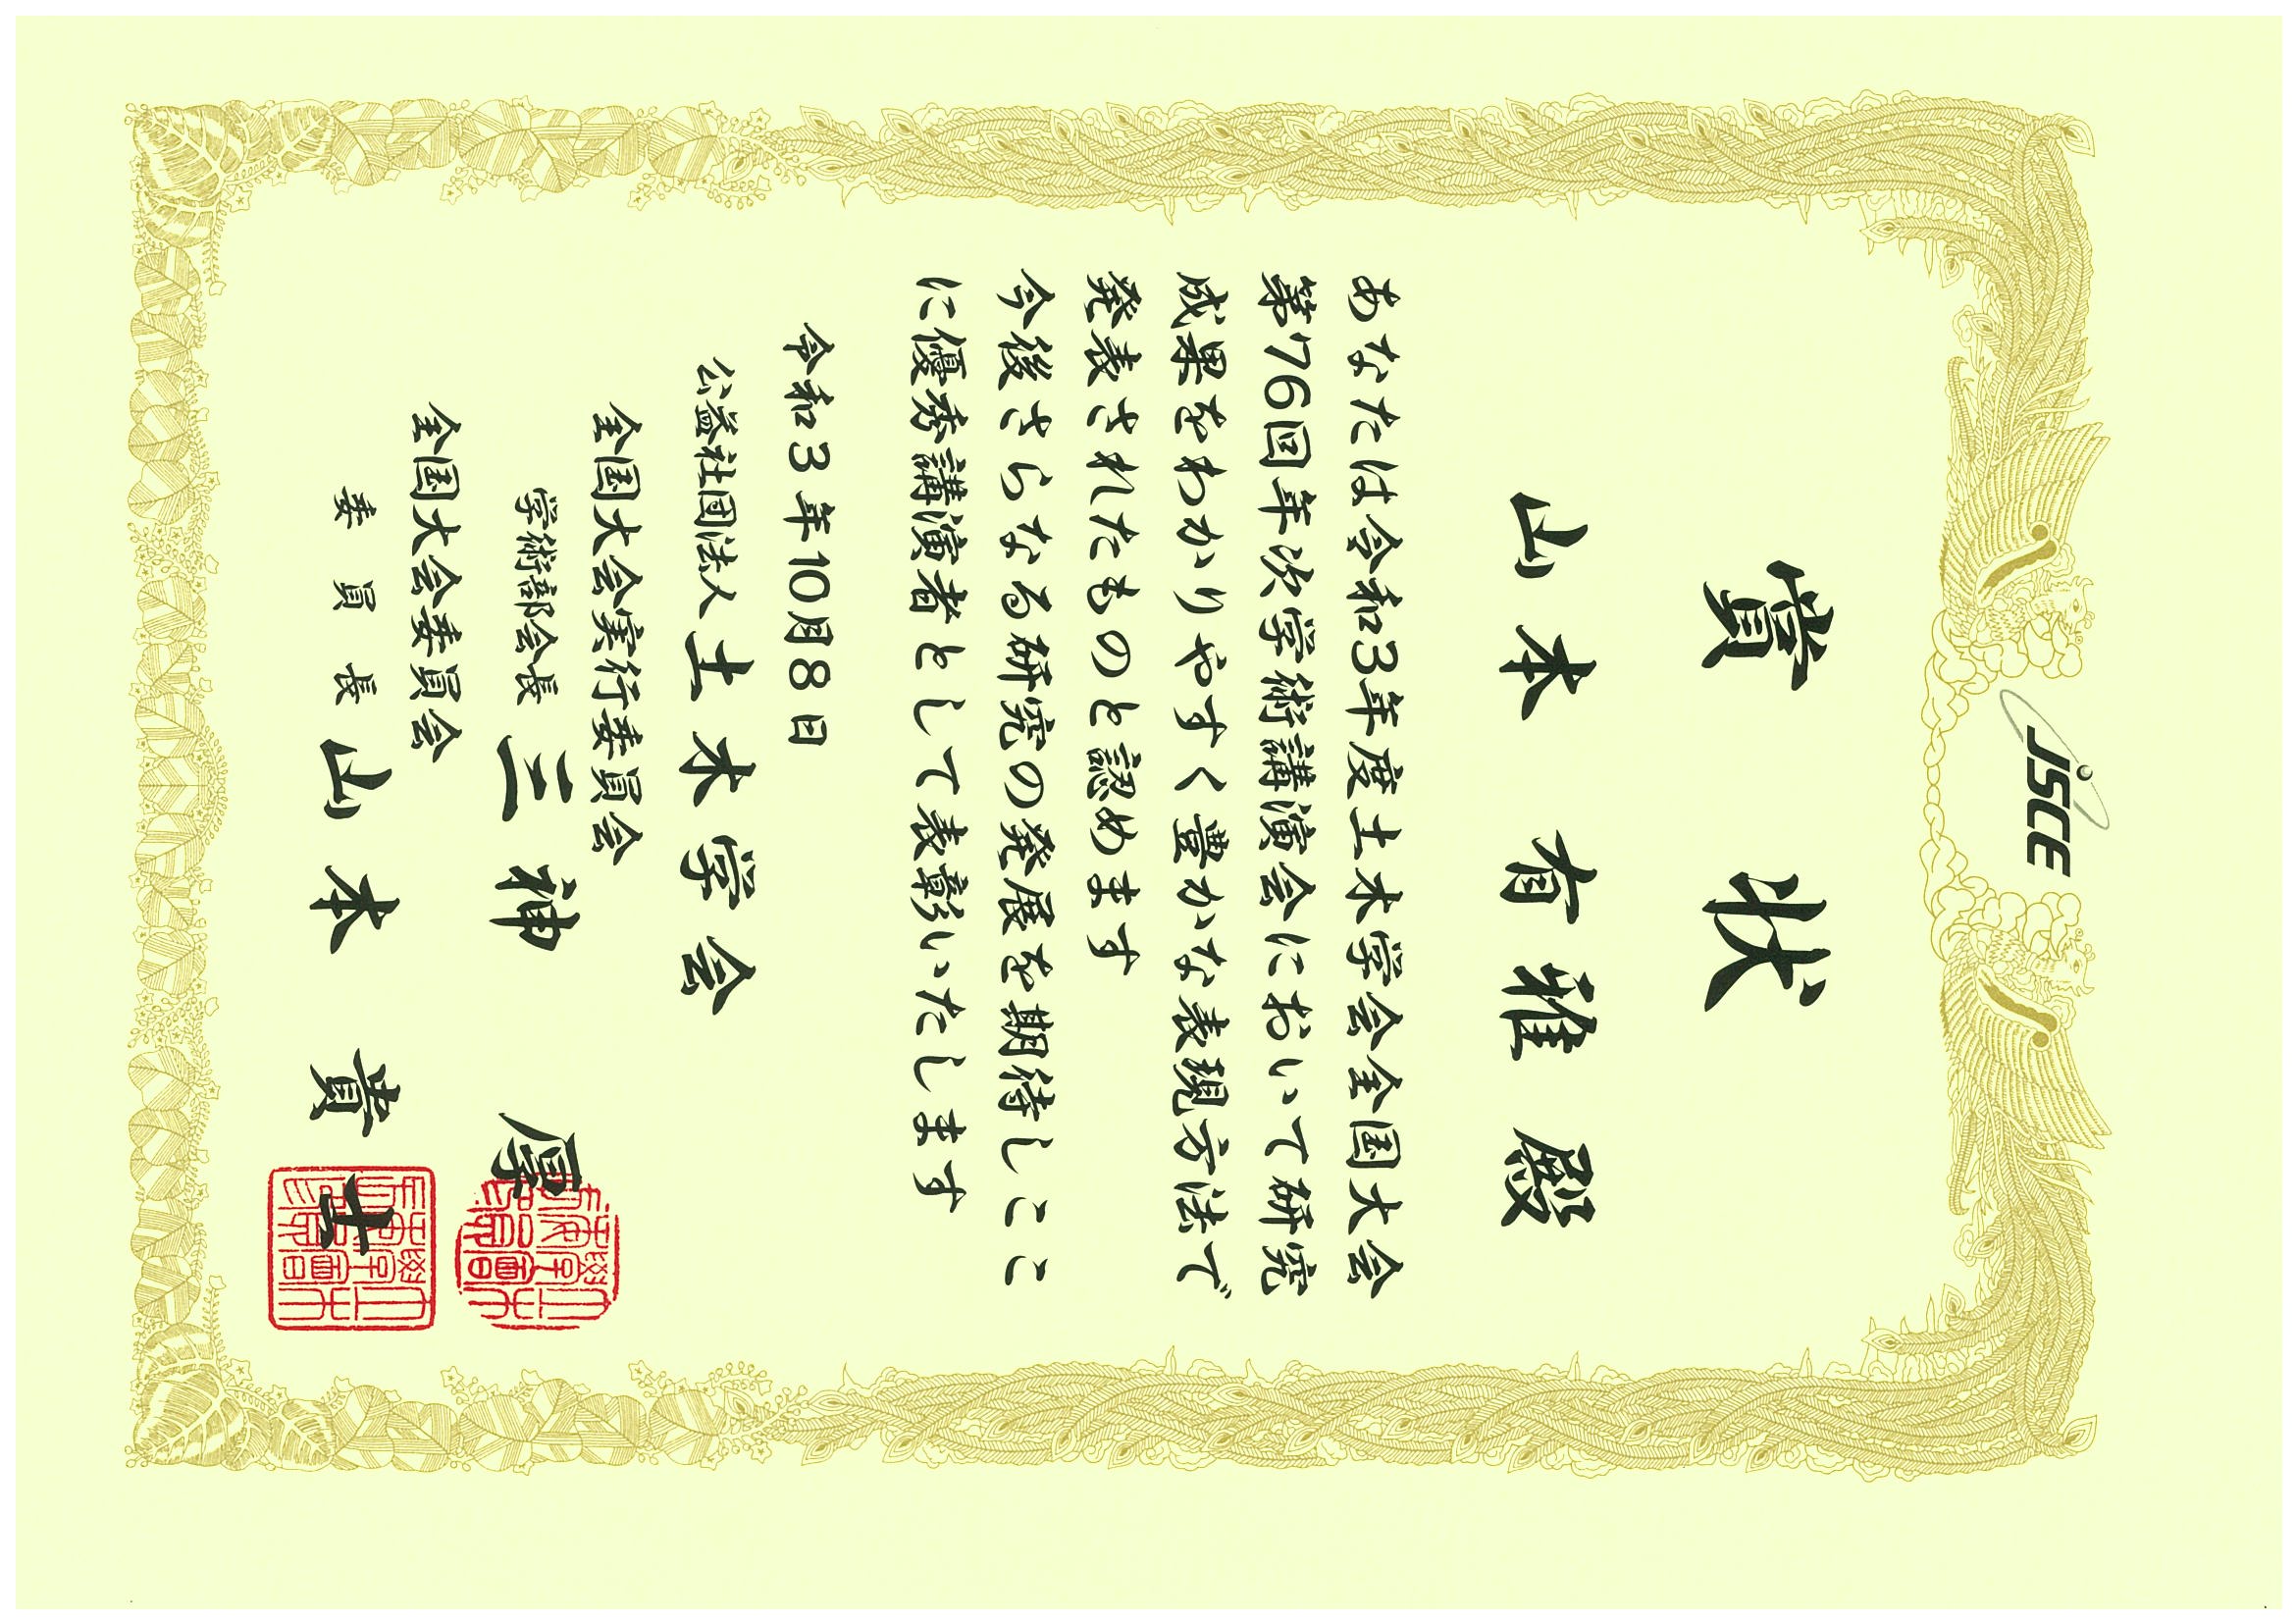 JSCE
賞状
山本 有雅 殿
あなたは令和3年度土木学会全国大会
第76回年次学術講演会において研究
成果をわかりやすく豊かな表現方法で
発表されたものと認めます
今後さらなる研究の発展を期待しここ
に優秀講演者として表彰いたします
令和3年10月8日
公益社団法人 土木学会
全国大会実行委員会
学術部会長 三神 厚
全国大会委員会
委員長 山本 貴士